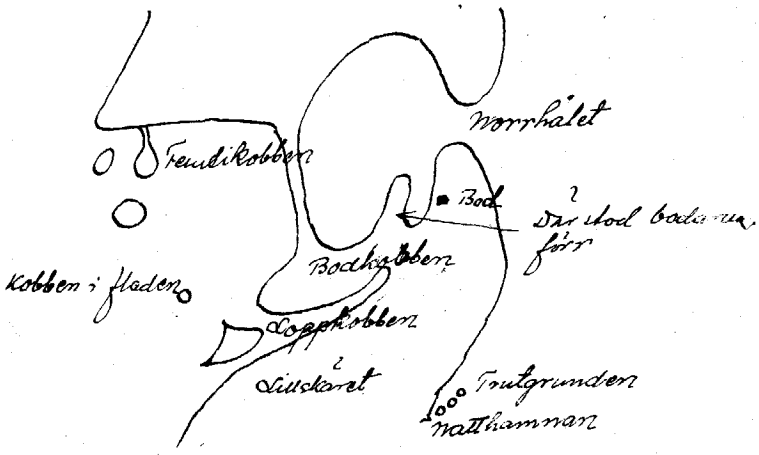 Norrhålet
Bod
Där stod bodarna
förr
Bodkobben
Kobben i fladen
Loppkobben
Lillskäret
Trutgrunden
Natthamnan